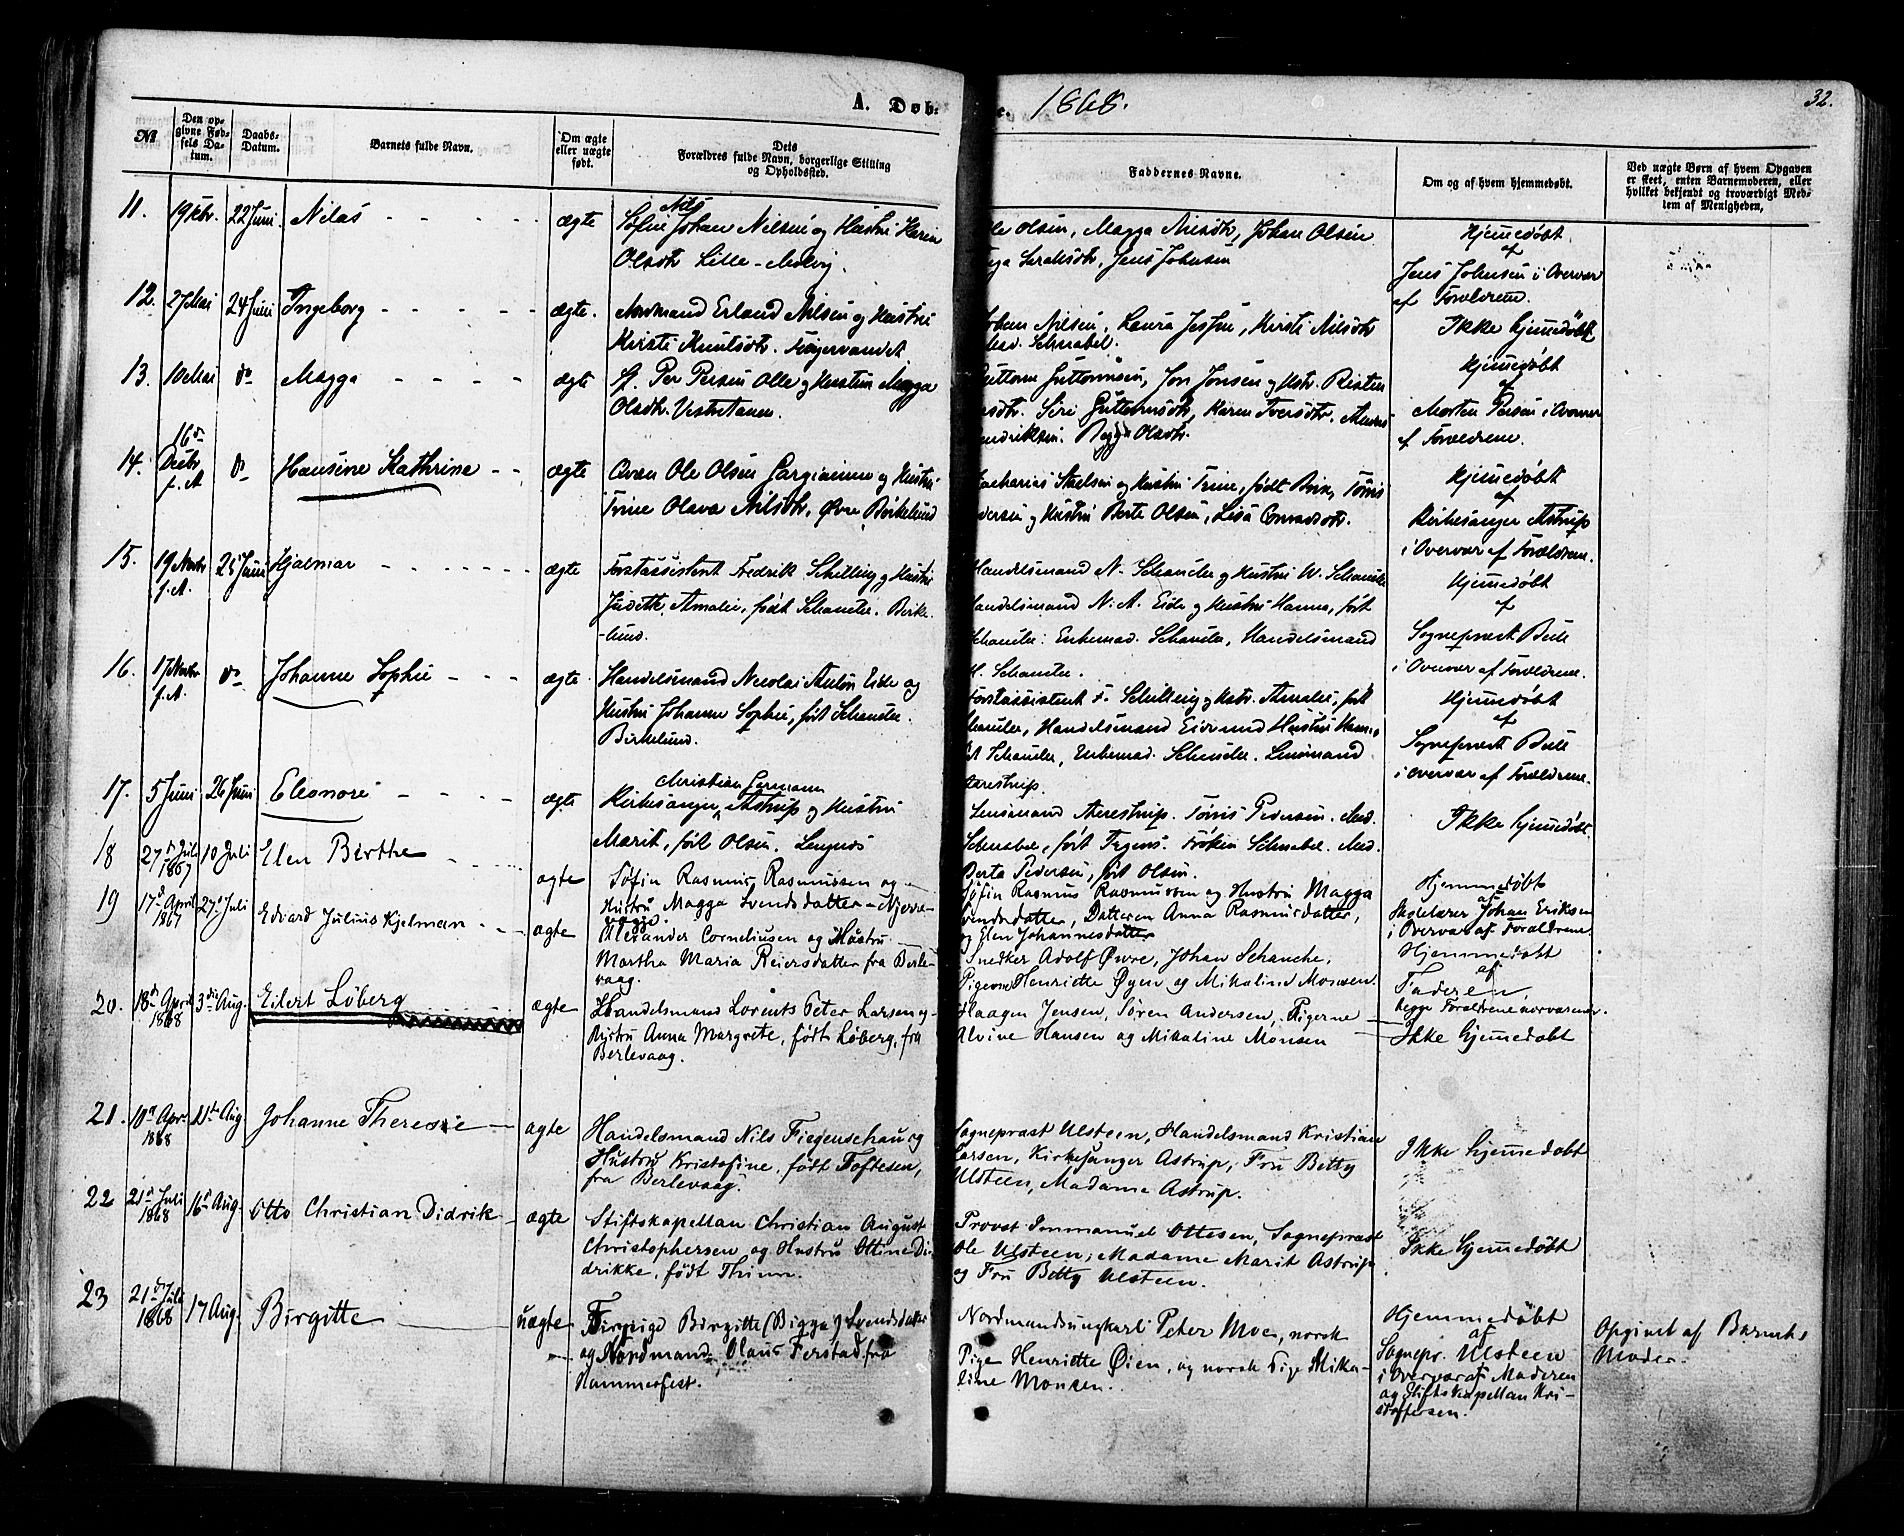 A. Døb. 1868. 32.
№
Den opgivne Fødsels Datum.
Daabs-Datum.
Barnets fulde Navn.
Om ægte eller uægte født.
Dets Forældres fulde Navn, borgerlige Stilling og Opholdssted.
Faddernes Navne.
Om og af hvem hjemmedøbt.
Ved uægte Børn af hvem Opgaven er skeet, enten Barnemoderen, eller hvilket bekjendt og troværdigt Medlem af Menigheden,
11. 22 Juni. Nilas ægte
Nils
Søfin Johan Nilsen og Hustru Karen
Olsdtr Lille-
Olsen, Magga Nilsdtr, Johan Olsen
Saralsdtr, Jens Johnsen
Hjemmedøbt
af
Jens Johnsen i Overvær
af Forældrene.
12. 27 Mai 24 Juni Ingeborg ægte.
Nordmand Erland Nilsen og Hustru
Kirsti Knutsdtr.
Nilsen, Laura Jessen, Kirsti Nilsdtr
Mad. Schnabel.
Ikke hjemmedøbt
13. 10 Mai do Magga ægte
Sf. Per Persen Olle og Hustru Magga
Olsdtr. Vestre Tanen.
Guttorm Guttormsen, Jon Jonsen og Hstr. Risten
Siri Guttormsdtr, Karen Iversdtr.
Olsdtr.
Hjemmedøbt
af
Morten Persen i Overvær
af Forældrene.
14. 16de Decbr f. A. do Hansine Kathrine ægte
Qvæn Ole Olsen og Hustru
Trine Olava Nilsdtr, Øvre Birkelund
og Hustru Trine, født Brix, Tønis
Pedersen og Hustru Berte Olsen, Lisa Conradsdtr.
Hjemmedøbt
af
Kirkesanger Astrup
i Overvær af Forældrene.
15. 19 Novbr f. A. 25 Juni Hjalmar ægte
Forstassistent Fredrik Schilling og Hustru
Judith Amalie, født Schanche. Birke
-lund.
Handelsmand N. Schanche og Hustru W. Schanche
Handelsmand N. A. Eide og Hustru Hanna, født
Schanche. Enkemad. Schanche, Handelsmand
H. Schanche.
Hjemmedøbt
af
Sogneprest Bull
i Overvær af Forældrene.
16. 17 Novbr f. A. do Johanne Sophie ægte
Handelsmand Nicolai Anton Eide og
Hustru Johanne Sophie, født Schanche.
Birkelund.
Forstassistent F. Schilling og Hstr. Amalie, født
Schanche, Handelsmand
Schanche, Enkemad. Schanche. Lensmand
Aarestrup.
Hjemmedøbt
af
Sogneprest Bull
i Overvær af Forældrene.
17. 5 Juni 26 Juni Eleonore ægte
Christian Lormann
Kirkesanger Astrup og Hustru
Marit, født Olsen. Langnes
Lensmand Aarestrup. Tønis Pedersen. Mad.
Schnabel, født Frøken Schnabel. Mad.
Berta Pedersen, født Olsen.
Ikke hjemmedøbt
18 27de Juli 1867 10 Juli Elen Birthe ægte
Søfin Rasmus Rasmussen og
Hustru Magga Svendsdatter
Søfin Rasmus Rasmussen og Hustru Magga
Svendsdatter, Datteren Anna Rasmusdatter,
og Elen Johannesdatter
Hjemmedøbt
af
Johan Eriksen
i Overvær af Forældrene.
19 17de April 1867 27de Juli Edvard Julius Kjelman ægte
Alexander Corneliusen og Hustru
Martha Maria Reiersdatter fra Berle-
vaag.
Snedker Adolf Øvre, Johan Schanche,
Pigerne Henriette Øyen og Mikaline Monsen.
Hjemmedøbt
af
Faderen
begge Forældrene nærværende.
20. 18de April 1868 3die Aug. Eilert Løberg ægte
Handelsmand Lorents Peter Larsen og
Hustru Anna Margrete, født Løberg, fra
Berlevaag.
Haagen Jensen, Søren Andersen, Pigerne
Alvine Hansen og Mikaline Monsen
Ikke hjemmedøbt
21. 10de Apr. 1868 11te Aug Johanne Theresie ægte
Handelsmand Nils Figenschau og
Hustru Kristofine, født Toftesen,
fra Berlevaag.
Sogneprest Ulsteen, Handelsmand Kristian
Larsen, Kirkesanger Astrup, Fru Betty
Ulsteen, Madame Astrup.
Ikke hjemmedøbt
22 21de Juli 1868 16de Aug. Otto Christian Didrik ægte
Stiftskapellan Christian August
Christophersen og Hustru Ottine Di-
drikke, født
Provst Immanuel Ottesen, Sogneprest
Ole Ulsteen, Madame Marit Astrup
og Fru Betty Ulsteen.
Ikke hjemmedøbt
23 21de Juli 1868 17 Aug. Birgitte uægte
Birgitte (Bigga) Svendsdatter
og Nordmand Olaus Ferstad fra
Hammerfest.
Nordmandsungkarl Peter Moe, norsk
Pige Henriette Øien, og norsk Pige Mika-
line Monsen.
Hjemmedøbt
af
Sognepr. Ulsteen
i Overvær af Moderen
og Stiftskapellan Kri-
stoffersen.
Opgivet af Barnets
Moder.